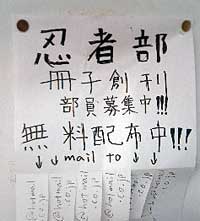 忍者部
冊子創刊
部員募集中!!!
無料配布中!!!
↓ ↓ mail to ↓ ↓